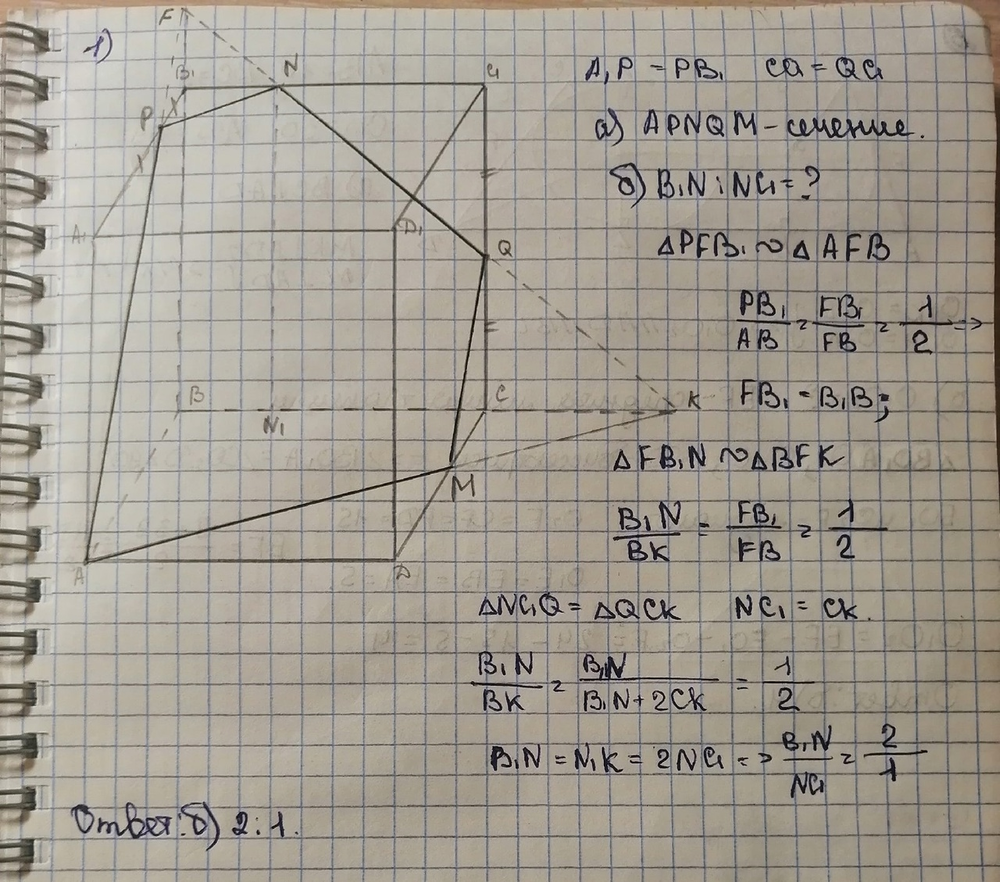 1)
F
B₁ N C₁
P
A₁ D₁
Q
B N₁ C K
M
A D
A₁P = PB₁ CQ = QC₁
а) APNQM – сечение.
б) B₁N : NC₁ = ?
△PFB₁ ∾ △AFB
PB₁/AB = FB₁/FB = 1/2 =>
FB₁ = B₁B;
△FB₁N ∾ △BFK
B₁N/BK = FB₁/FB = 1/2
△NC₁Q = △QCK NC₁ = CK.
B₁N/BK = B₁N/B₁N+2CK = 1/2
B₁N = N₁K = 2NC₁ => B₁N/NC₁ = 2/1
Ответ: б) 2:1.